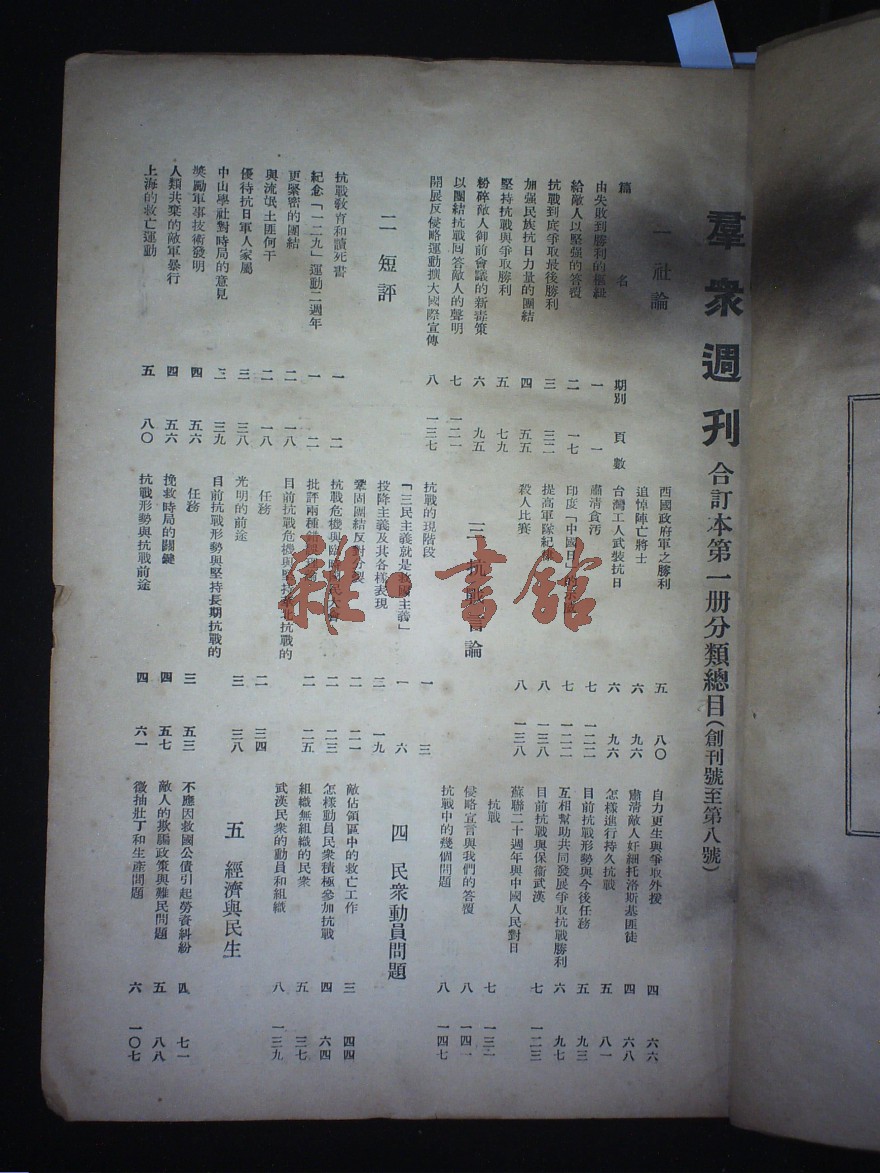 羣衆週刊合訂本第一册分類總目（創刊號至第八號）
篇名 期別 頁數
一 社論
由失敗到勝利的樞紐 一 一
給敵人以堅强的答覆 二 一七
抗戰到底爭取最後勝利 三 三二
加强民族抗日力量的團結 四 五五
堅持抗戰與爭取勝利 五 七九
粉碎敵人御前會議的新毒策 六 九五
以團結抗戰囘答敵人的聲明 七 一二一
開展反侵略運動擴大國際宣傳 八 一三七
二 短評
抗戰敎育和讀死書 一 二
紀念「一二九」運動二週年 一 二
更緊密的團結 二 一八
與流氓土匪何干 二 一八
優待抗日軍人家屬 三 三八
中山學社對時局的意見 三 三九
獎勵軍事技術發明 四 五六
人類共棄的敵軍暴行 四 五六
上海的救亡運動 五 八〇
西國政府軍之勝利 五 八〇
追悼陣亡將士 六 九六
台灣工人武裝抗日 六 九六
肅清貪汚 七 一二二
印度「中國日」的 七 一二二
提高軍隊紀 八 一三八
殺人比賽 八 一三八
三 抗戰言論
抗戰的現階段 一 三
「三民主義就是救國主義」 一 六
投降主義及其各樣表現 二 一九
鞏固團結反對分裂 二 二一
抗戰危機與臨時國民大會 二 二三
批評兩種錯誤 二 二五
目前抗戰危機與堅持華北抗戰的
任務 二 三四
光明的前途 三 三八
目前抗戰形勢與堅持長期抗戰的
任務 三 五三
挽救時局的關鍵 四 五七
抗戰形勢與抗戰前途 四 六一
自力更生與爭取外援 四 六六
肅清敵人奸細托洛斯基匪徒 四 六八
怎樣進行持久抗戰 五 八一
目前抗戰形勢與今後任務 五 九三
互相幫助共同發展爭取抗戰勝利 六 九七
目前抗戰與保衛武漢 七 一二三
蘇聯二十週年與中國人民對日
抗戰 七 一三一
侵略宣言與我們的答覆 八 一四一
抗戰中的幾個問題 八 一四七
四 民衆動員問題
敵佔領區中的救亡工作 三 四四
怎樣動員民衆積極參加抗戰 四 六四
組織無組織的民衆 五 三七
武漢民衆的動員和組織 八 一三九
五 經濟與民生
不應因救國公債引起勞資糾紛 四 七一
敵人的欺騙政策與難民問題 五 八八
徵抽壯丁和生產問題 六 一〇七
雜·書館